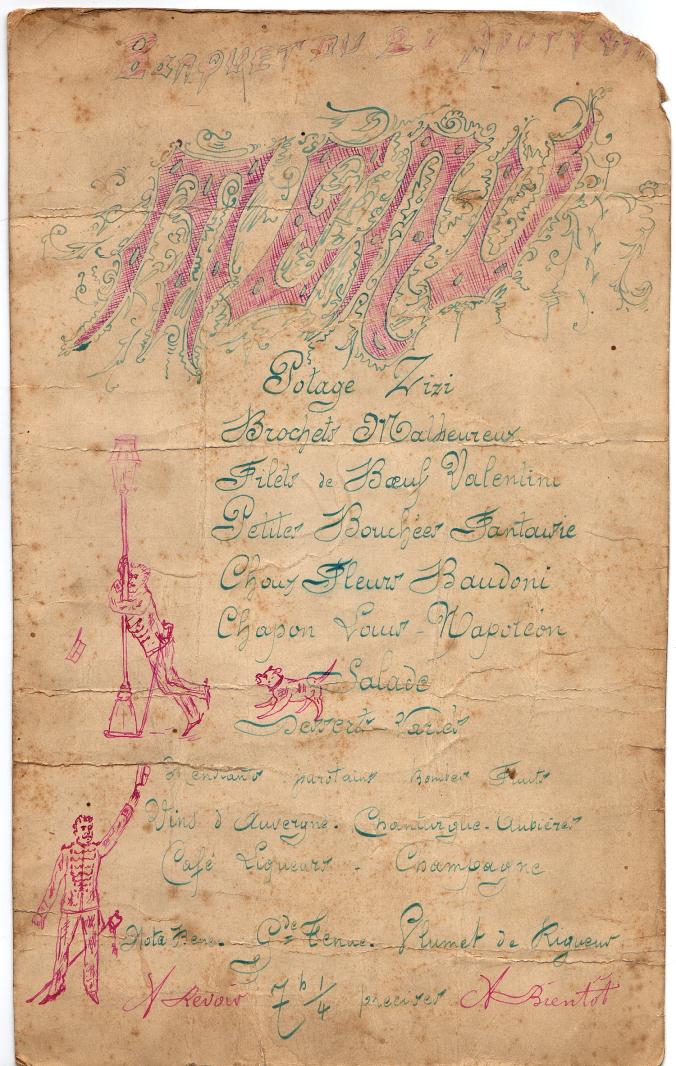 Banquet du 2
MENU
Potage Zizi
Brochets Malheureux
Filets de Bœuf Valentini
Petites Bouchées Fantaisie
Choux Fleurs Baudoni
Chapon Louis-Napoléon
Salade
Dessert Variés
Mendiants Fruits
Vins d'Auvergne - Chanturgue - Aubières
Café Liqueurs - Champagne
Nota Bene - Gde Tenue - Plumet de Rigueur
A Revoir 7h 1/4 précises A Bientôt